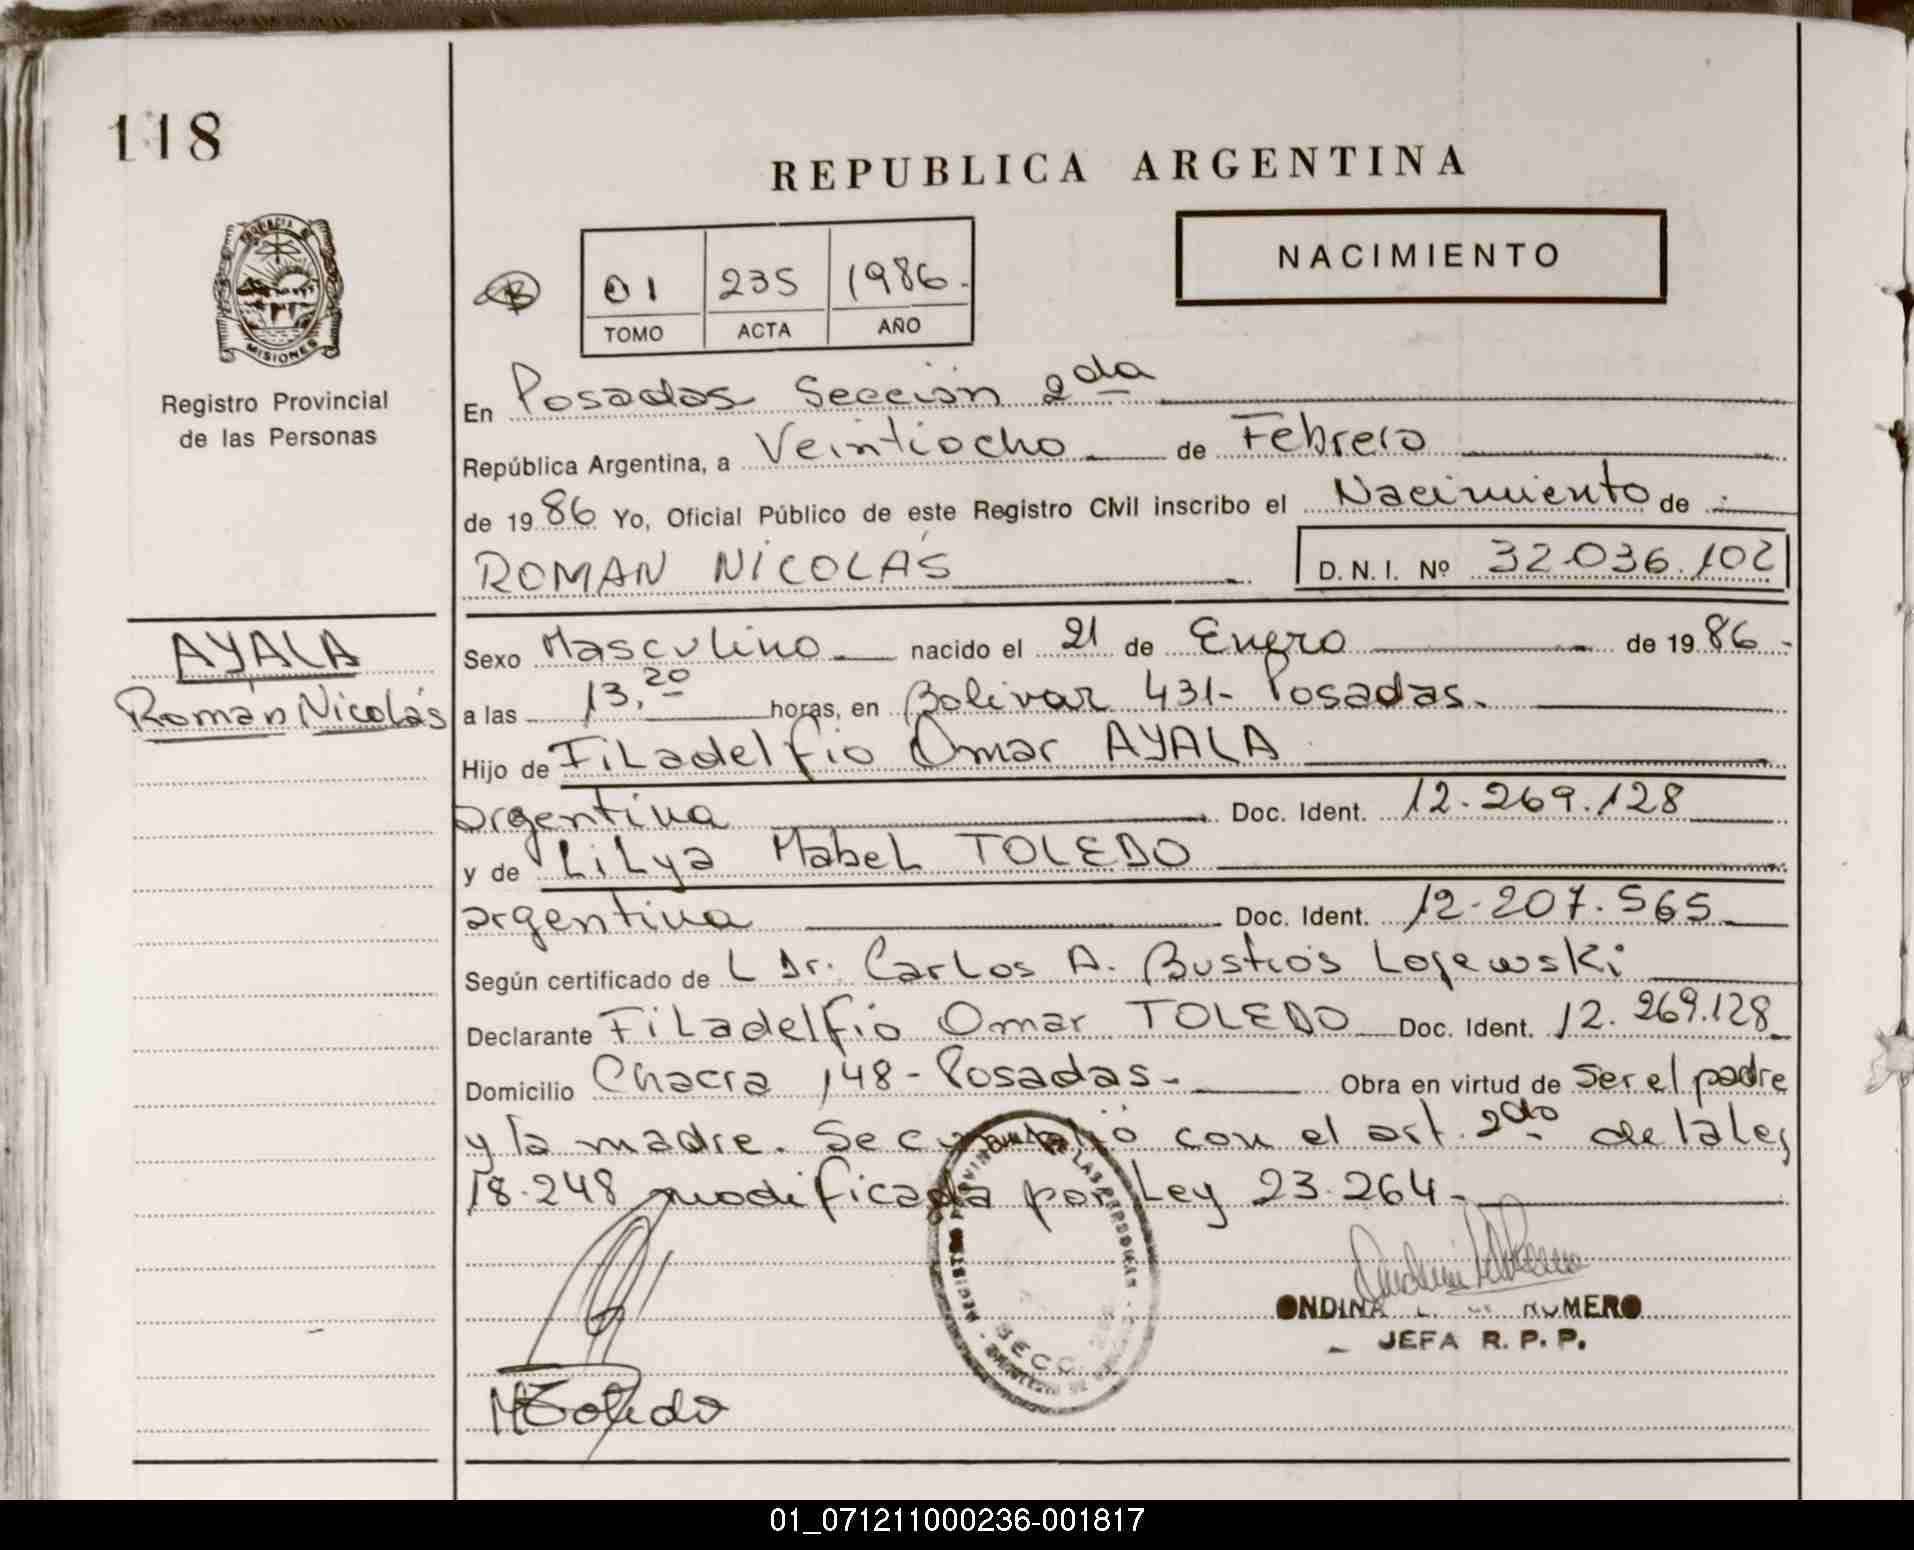 118
REPUBLICA ARGENTINA
NACIMIENTO
01 235 1986.
TOMO ACTA AÑO
MISIONES
Registro Provincial
de las Personas
En Posadas Sección 2da
República Argentina, a Veintiocho de Febrero
de 1986 Yo, Oficial Público de este Registro Civil inscribo el Nacimiento de :
ROMAN NICOLÁS D.N.I. Nº 32.036.102
AYALA
Román Nicolás
Sexo Masculino nacido el 21 de Enero de 1986-
a las 13,20 horas, en Bolivar 431- Posadas.
Hijo de Filadelfio Omar AYALA
argentina Doc. Ident. 12.269.128
y de Lilya Mabel TOLEDO
argentina Doc. Ident. 12.207.565
Según certificado de L Dr. Carlos A. Bustros Losewski
Declarante Filadelfio Omar TOLEDO Doc. Ident. 12.269.128
Domicilio Chacra 148- Posadas- Obra en virtud de ser el padre
y la madre. Se con el art. 2do de la ley
18.248 modificada por Ley 23.264-
MToledo
ONDINA ROMERO
JEFA R.P.P.
LAS PERSONAS
SECC.
01_071211000236-001817